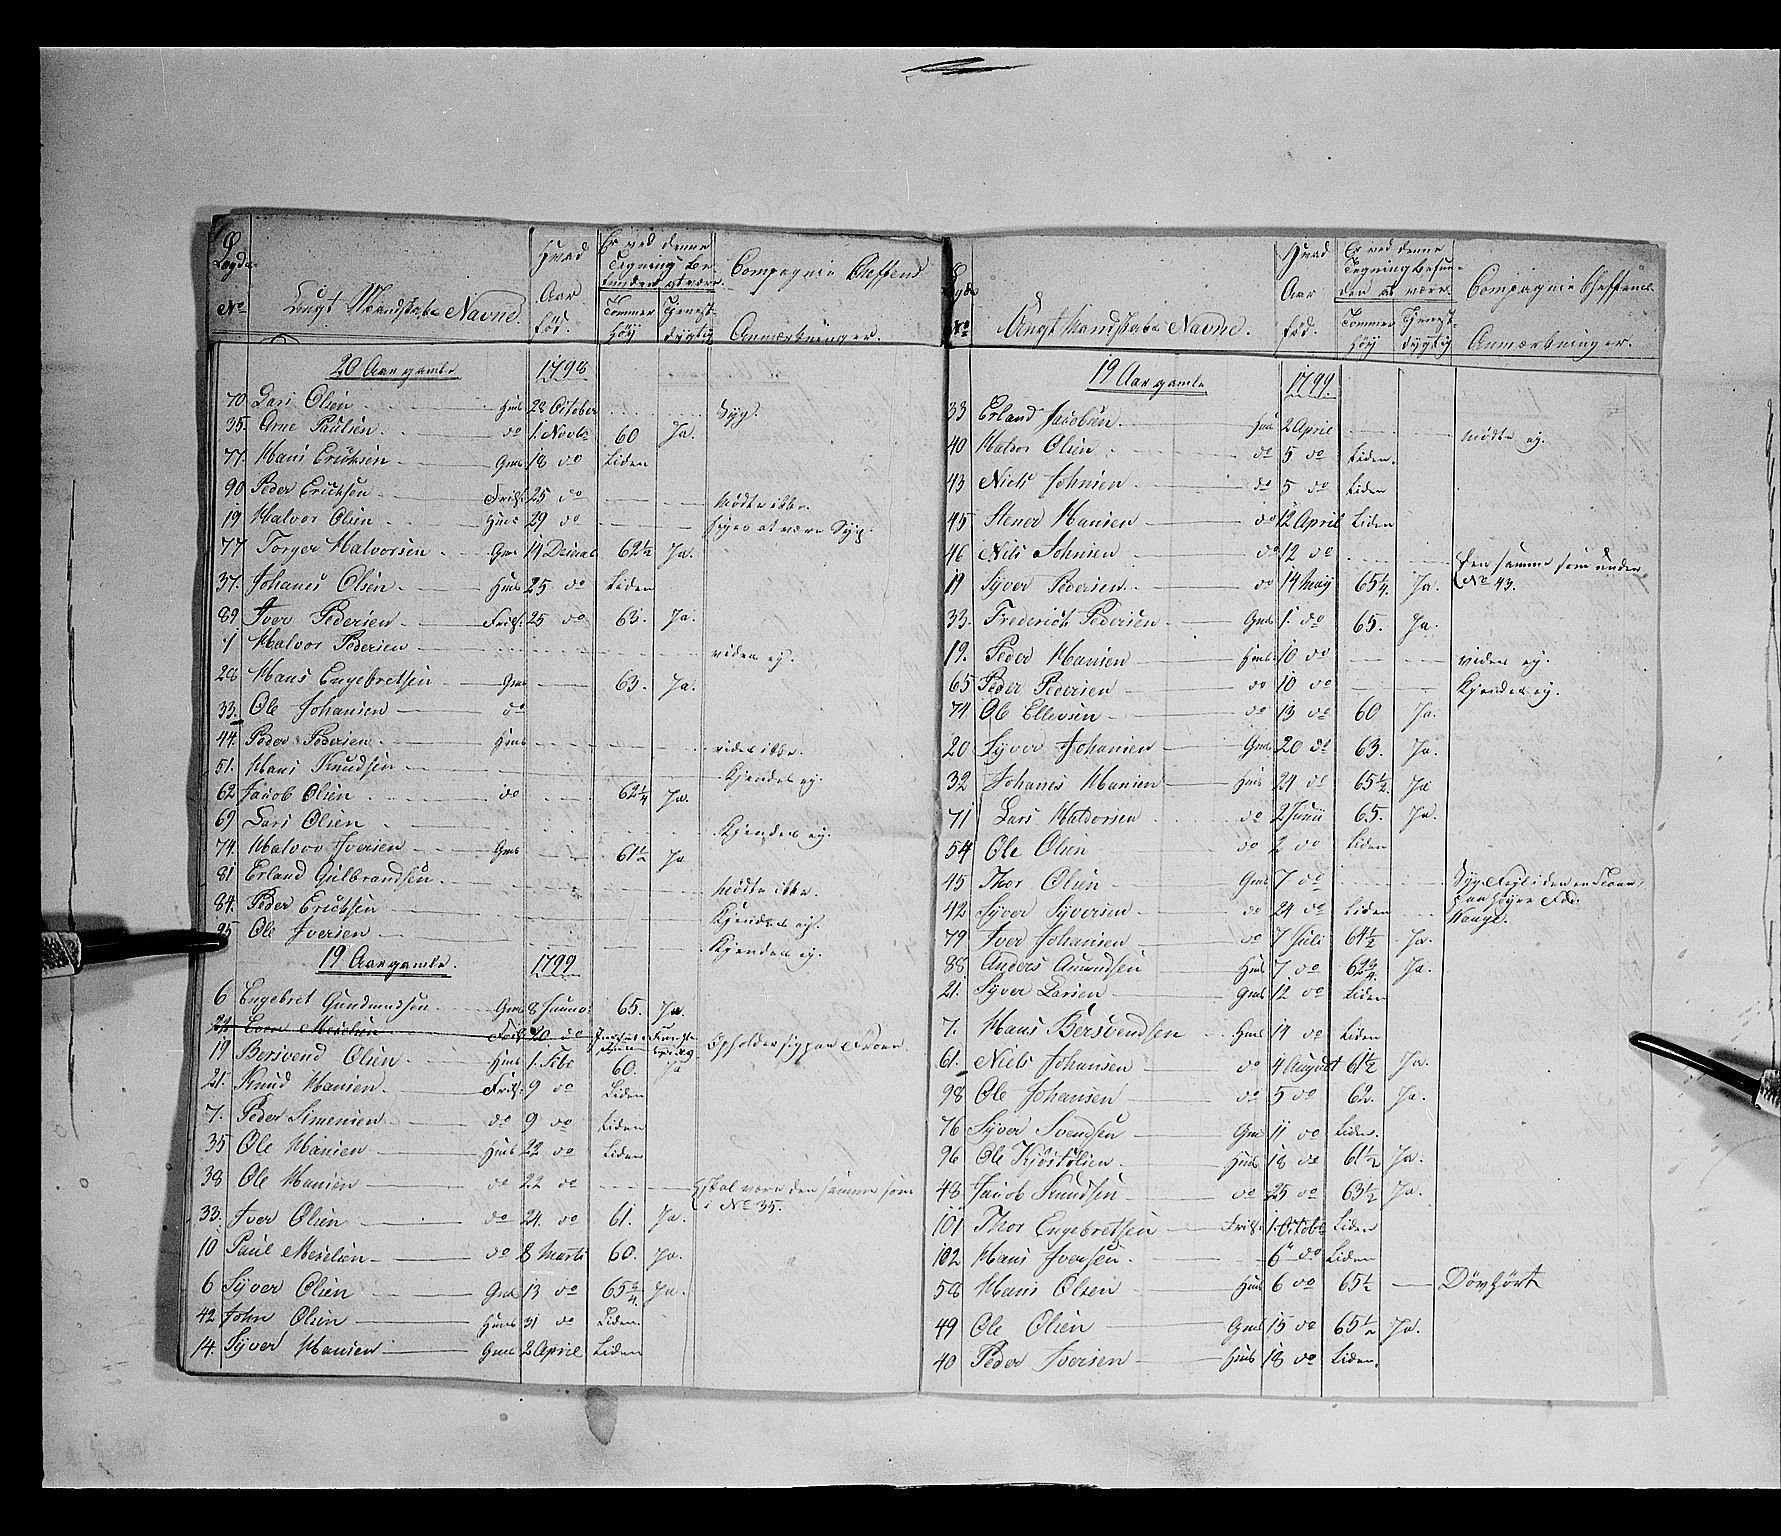 Lægds No | Ungt Mandskabs Navne. | Hvad Aar fød. | Er ved denne Tegning befunden at være Tommer Høy | Tienstdygtig | Compagnie Cheffens Anmærkninger.
20 Aar gamle 1798
70 Lars Olsen Huus 28 October Syg.
35. Arne Paulsen do 1. Novbr 60 Ja.
77. Hans Ericksen Gmd 18 do Liden
90 Peder Ericksen 25 do Mødte ikke.
19 Halvor Olsen Huus 29 do siges at være Syg.
77 Torger Halvorsen Gmd 14 62½ Ja.
37. Johanes Olsen Huus 25 do Liden
89 Iver Pedersen 25 do 63. Ja.
1 Halvor Pedersen vides ej.
28 Hans Engebretsen Gmd 63. Ja.
33. Ole Johansen do
44. Peder Pedersen Huus vides ikke.
51. Hans Knudsen Kjendes ej.
62 Jacob Olsen do 62¼ Ja.
69 Lars Olsen Kjendes ej.
74 Halvor Iversen Gmd 61½ Ja
81 Erland Gulbrandsen Mødte ikke.
84. Peder Ericksen Kjendes ej.
95 Ole Iversen Kjendes ej.
19 Aar gamle. 1799
6 Engebret Gundmundsen Gmd 8 65. Ja.
20 do
19 Bersvend Olsen Huus 1. Febr 60. Ja
21. Knud Hansen 9 do Liden
7. Peder Simensen do 9 do Liden
35 Ole Hansen Huus 22 do Liden
38 Ole Hansen do 22 do Skal være den samme som i No 35.
33. Iver Olsen do 24. do 61. Ja.
10 Paul Meselsen do 8 Marts 60. Ja.
6 Syver Olsen Gmd 13 do 65¾ Ja.
42 John Olsen Huus 31 do Liden.
14. Syver Hansen Gmd 2 April Liden
Lægds No | Ungt Mandskabs Navne. | Hvad Aar fød. | Er ved denne Tegning befunden at være Tommer Høy | Tienstdygtig | Compagnie Cheffens Anmærkninger.
19 Aar gamle 1799.
33 Erland Jacobsen Huus 2 April Mødte ej.
40 Halvor Olsen do 5 do Liden.
43 Niels Johnsen do 5 do Liden
45 Stener Hansen do 12 April Liden
46 Nils Johnsen do 12 do Den samme som under No 43.
19 Syver Pedersen do 14 May 65¼ Ja.
33. Frederich Pedersen Gmd 1. do 65. Ja.
19. Peder Hansen Huus 10 do vides ej.
65 Peder Pedersen do 10 do Kjendes ej.
74 Ole Ellevsen do 13 do 60 Ja.
20 Syver Johansen Gmd 20 do 63. Ja
32 Johanes Hansen Huus 24 do 65½ Ja
71 Lars Haldorsen do 2 Junii 65. Ja.
54 Ole Olsen do 2 do Liden
45 Thor Olsen Gmd 7 do
42 Syver Syversen do 24 do Liden
79 Iver Johansen do 7 Juli 64½ Ja.
88. Anders Amundsen Huus 7. do 62¾ Ja.
21. Syver Larsen Gmd 12 do Liden
7. Hans Bersvendsen Huus 14 do Liden
61. Niels Johansen do 4 August 61½ Ja.
98 Ole Johansen do 5 do 62. Ja.
76 Syver Svendsen Gmd 11 do Liden.
96 Ole Kjøstølsen Huus 18 do 61½ Ja.
48 Jacob Knudsen do 25 do 63½ Ja.
101 Thor Engebretsen 1. Octobr Liden
102 Hans Iversen 6 do Liden
58 Hans Olsen Huus 6 do 65½ Døvhørt
49 Ole Olsen Gmd 15 do 65½ Ja.
40 Peder Iversen Huus 18 do Liden.